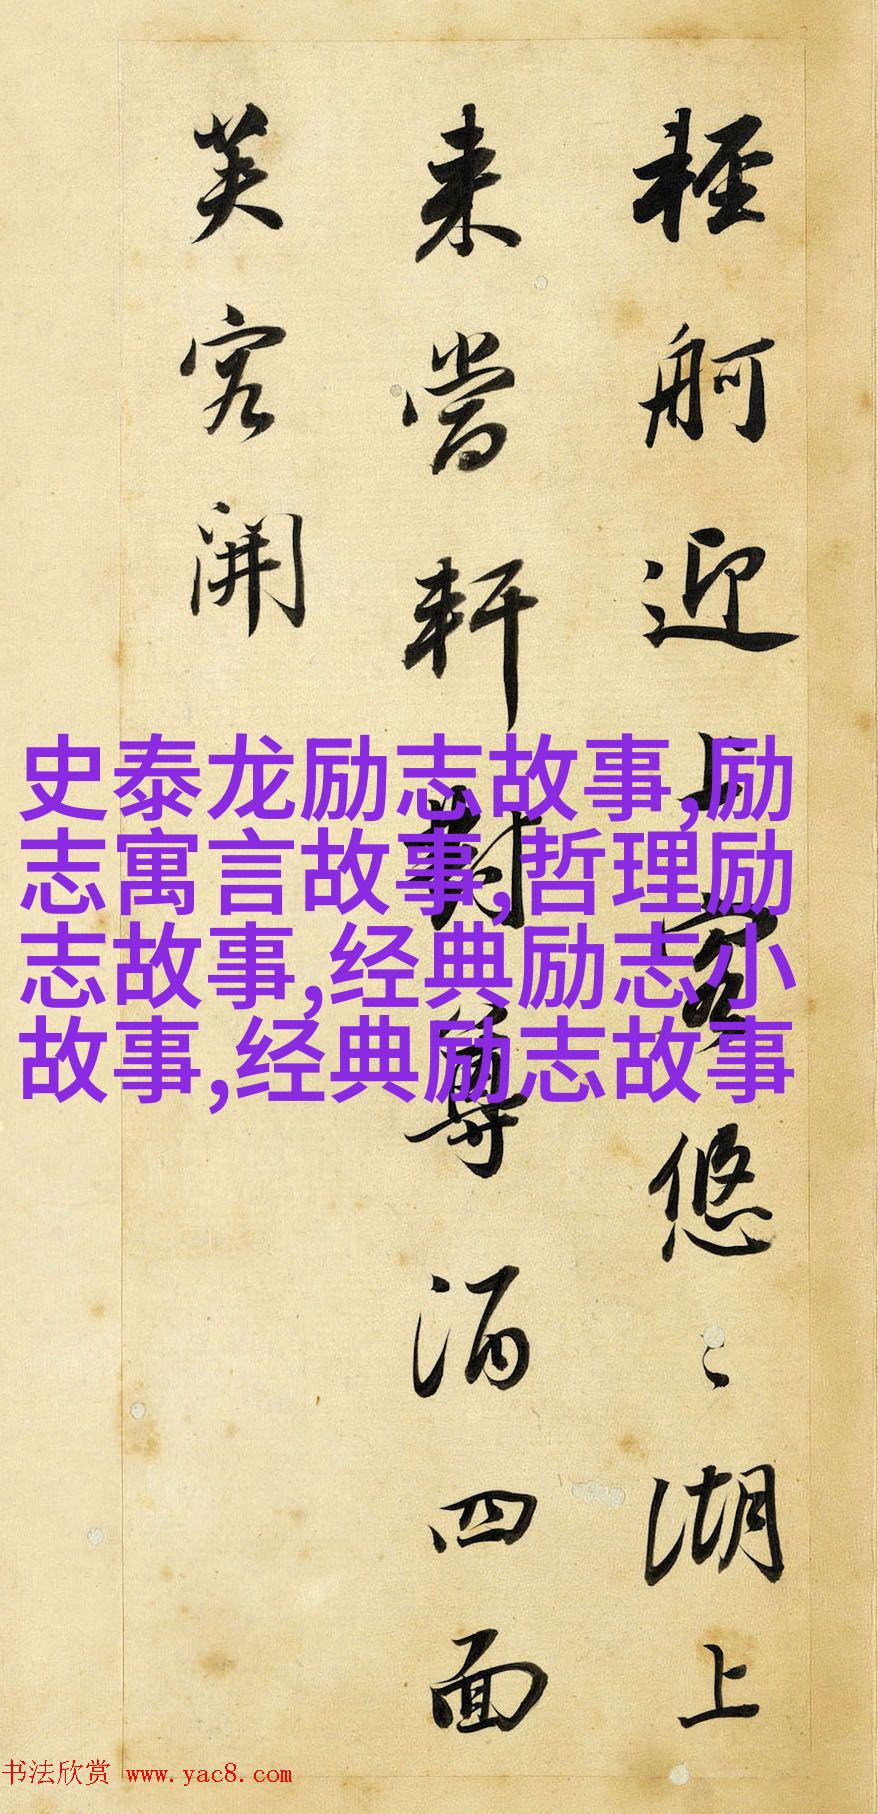 輕舸迎上客悠〻湖上
来當軒對尊酒四面
芙容開
史泰龙励志故事,励
志寓言故事,哲理励
志故事,经典励志小
故事,经典励志故事
书法欣赏 www.yac8.com